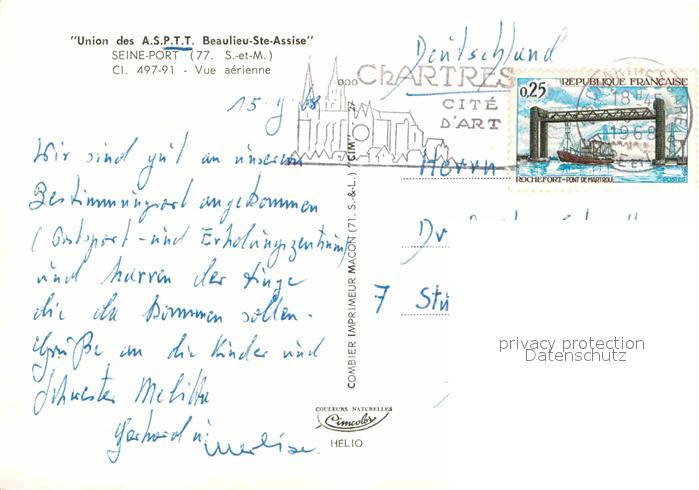 "Union des A.S.P.T.T. Beaulieu-Ste-Assise"
SEINE-PORT (77. S.-et-M.)
Cl. 497-91 - Vue aérienne
15. 9. 68
Wir sind gut an unserem
Bestimmungsort angekommen
(Postsport- und Erholungszentrum)
und harren der Dinge
die da kommen sollen.
Grüße an die Kinder und
Schwester Melitta
Gerhard u.
COMBIER IMPRIMEUR MACON (71. S.-&-L.) "CIM"
COULEURS NATURELLES
Cimcolor
HÉLIO
Deutschland
CHARTRES
CITÉ
D'ART
0,25 REPUBLIQUE FRANÇAISE
ROCHEFORT-PONT DE MARTROU POSTES
18
1968
Herrn
Dr
7 Stu
privacy protection
Datenschutz